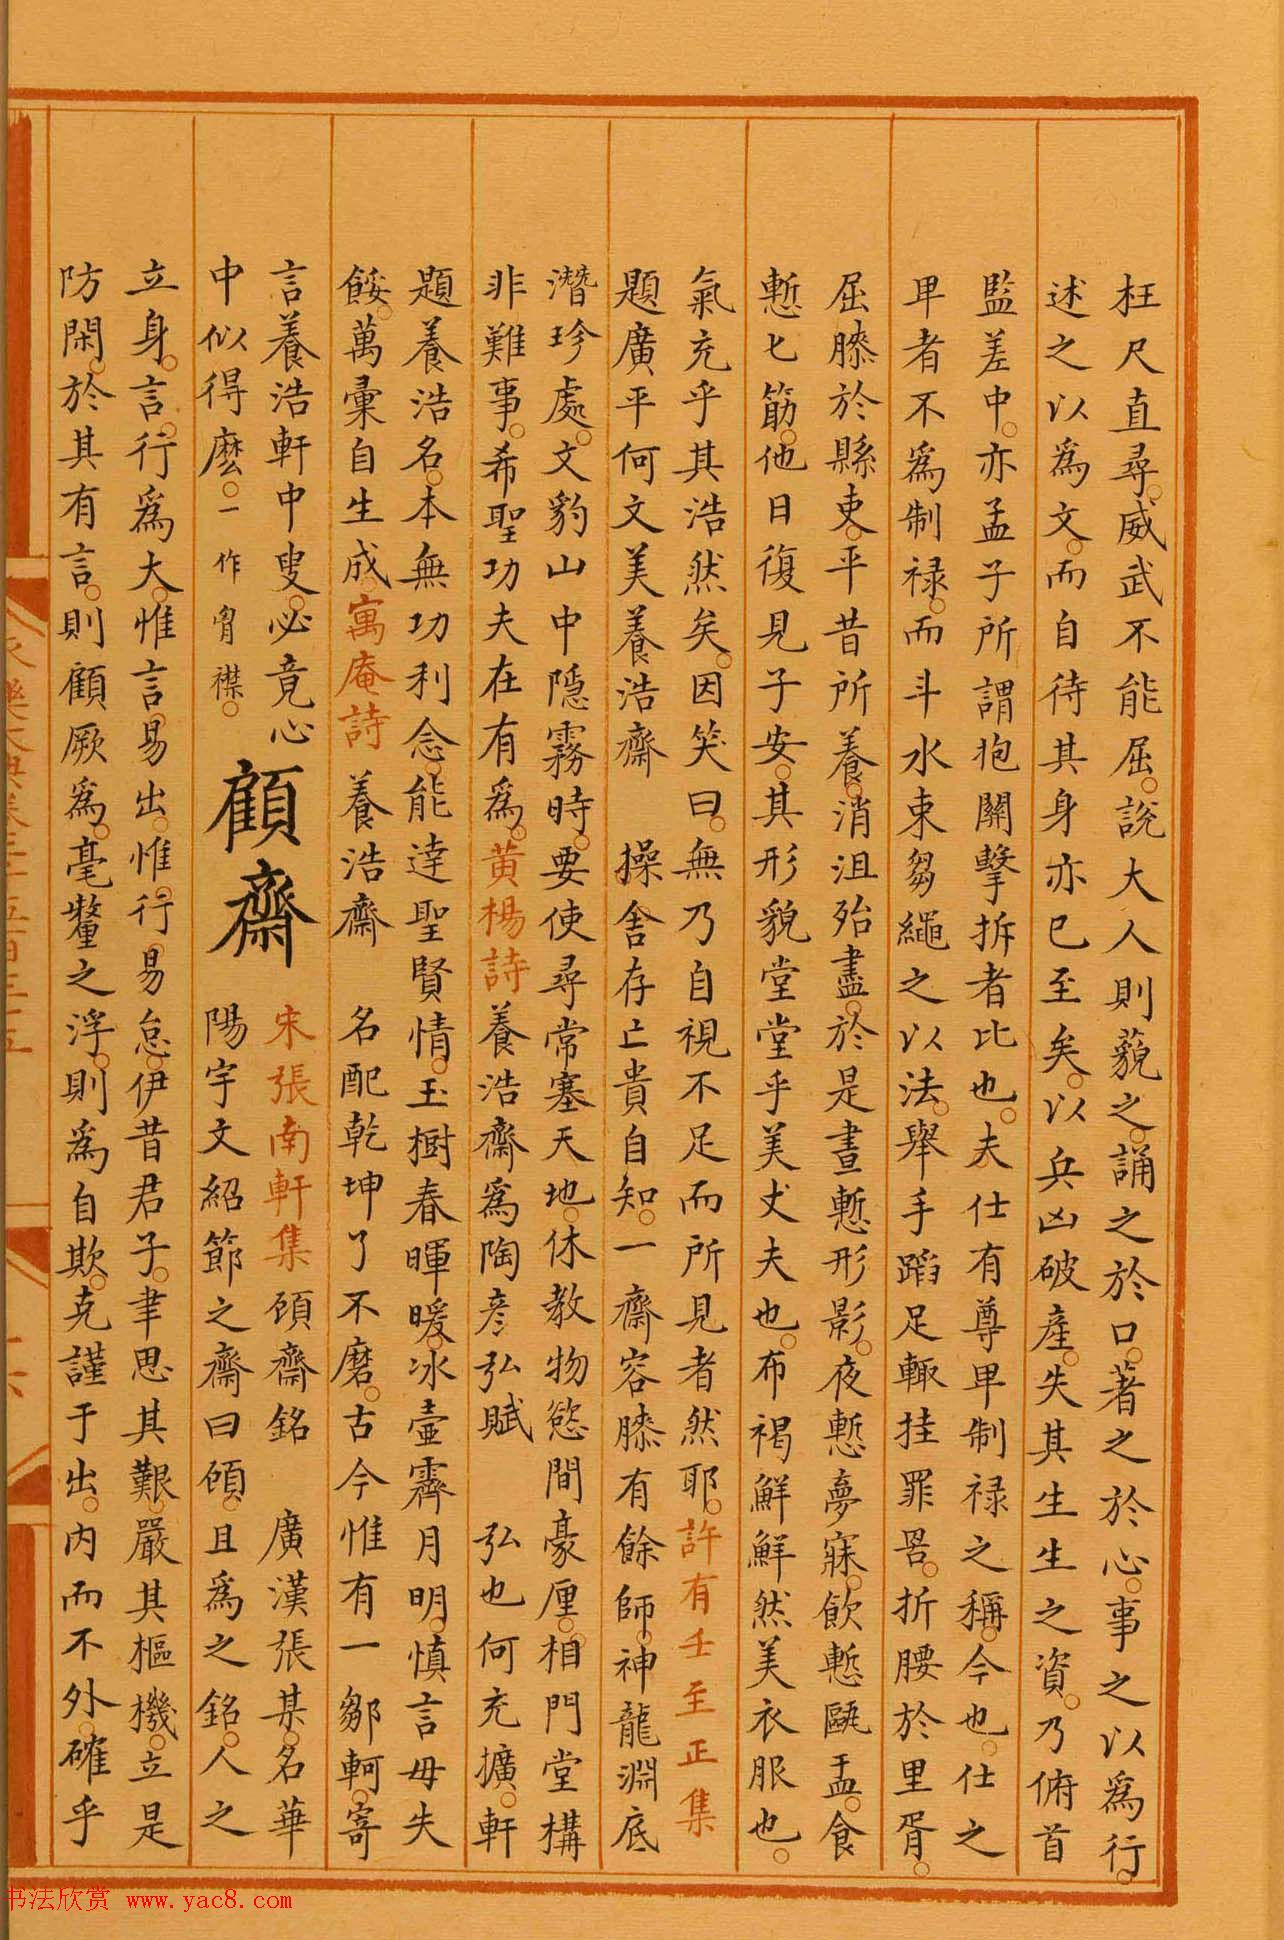 枉尺直尋。威武不能屈。說大人則藐之。誦之於口。著之於心。事之以為行。
述之以為文。而自待其身亦已至矣。以兵凶破產。失其生生之資。乃俯首
監差中。亦孟子所謂抱關擊拆者比也。夫仕有尊卑制祿之稱。今也。仕之
卑者不為制祿。而斗水束芻繩之以法。舉手蹈足輒挂罪罟。折腰於里胥。
屈膝於縣吏。平昔所養。消沮殆盡。於是晝慙形影。夜慙夢寐。飲慙甌盂。食
慙匕筯。他日復見子安。其形貌堂堂乎美丈夫也。布褐鮮鮮然美衣服也。
氣充乎其浩然矣。因笑曰。無乃自視不足而所見者然耶。許有壬至正集
題廣平何文美養浩齋 操舍存亡貴自知。一齋容膝有餘師。神龍淵底
潛珍處。文豹山中隱霧時。要使尋常塞天地。休教物慾間豪厘。相門堂構
非難事。希聖功夫在有為。黃楊詩養浩齋為陶彥弘賦 弘也何充擴。軒
題養浩名。本無功利念。能達聖賢情。玉樹春暉暖。冰壺霽月明。慎言毋失
餒。萬彙自生成。寓庵詩 養浩齋 名配乾坤了不磨。古今惟有一鄒軻。寄
言養浩軒中叟。必竟心
中似得麼。一作胷襟。
顧齋
宋張南軒集 顧齋銘 廣漢張某。名華
陽宇文紹節之齋曰顧。且為之銘。人之
立身。言。行為大。惟言。易出。惟行。易怠。伊昔君子。聿思其艱。嚴其樞機。立是
防閑。於其有言。則顧厥為。毫釐之浮。則為自欺。克謹于出。內而不外。確乎
永樂大典卷二千五百三十五
十六
书法欣赏 www.yac8.com